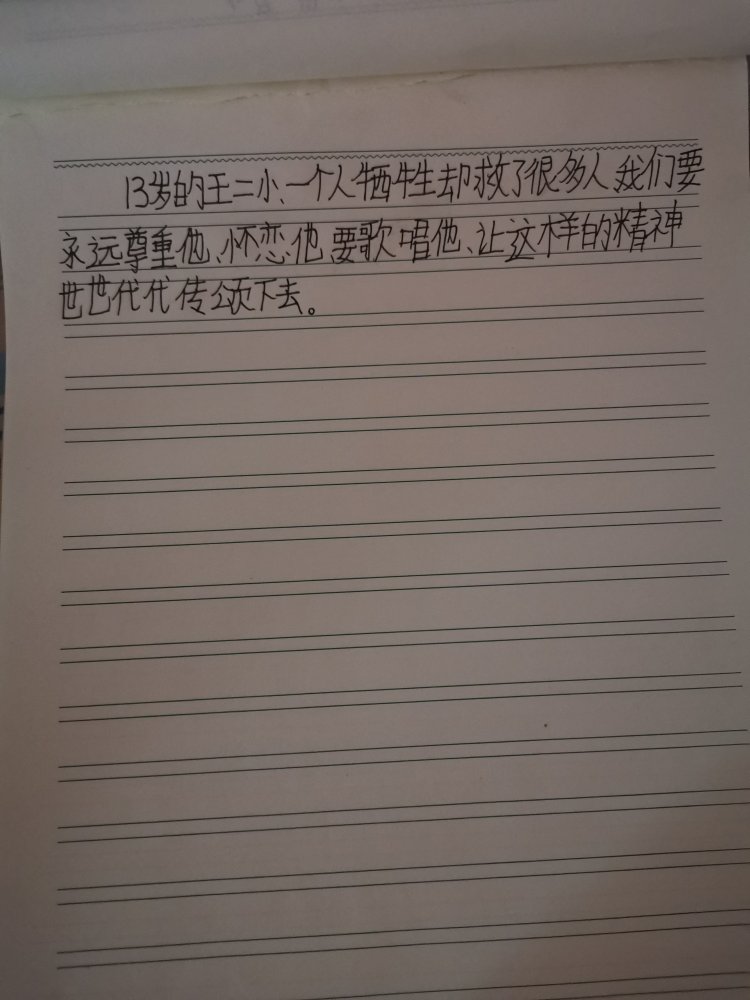 13岁的王二小、一个人牺牲却救了很多人、我们要
永远尊重他、怀恋他、要歌唱他、让这样的精神
世世代代传颂下去。